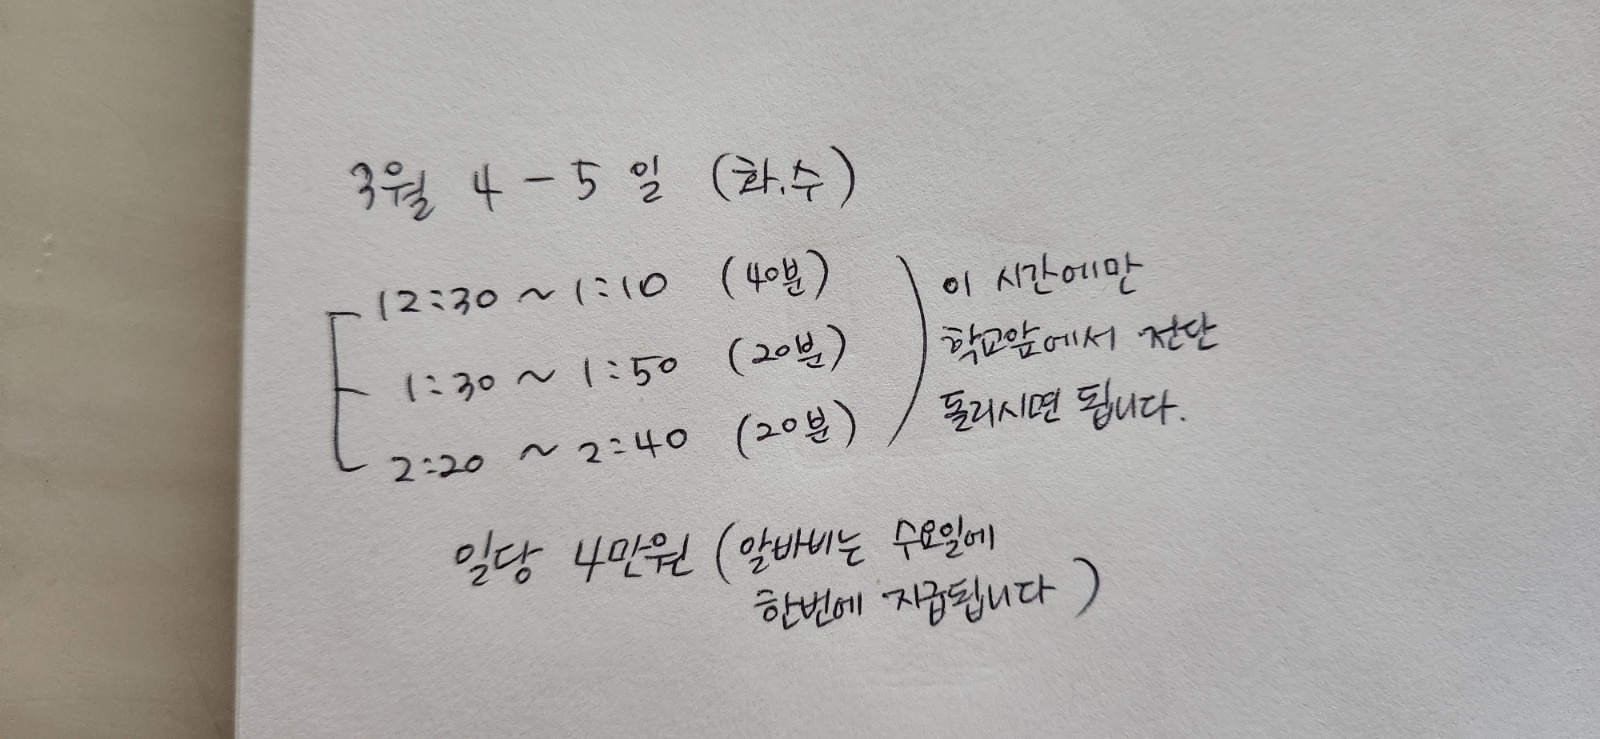 3월 4-5일 (화.수)
12:30 ~ 1:10 (40분)
1:30 ~ 1:50 (20분)
2:20 ~ 2:40 (20분)
이 시간에만
학교앞에서 전단
돌리시면 됩니다.
일당 4만원 (알바비는 수요일에
한번에 지급됩니다)